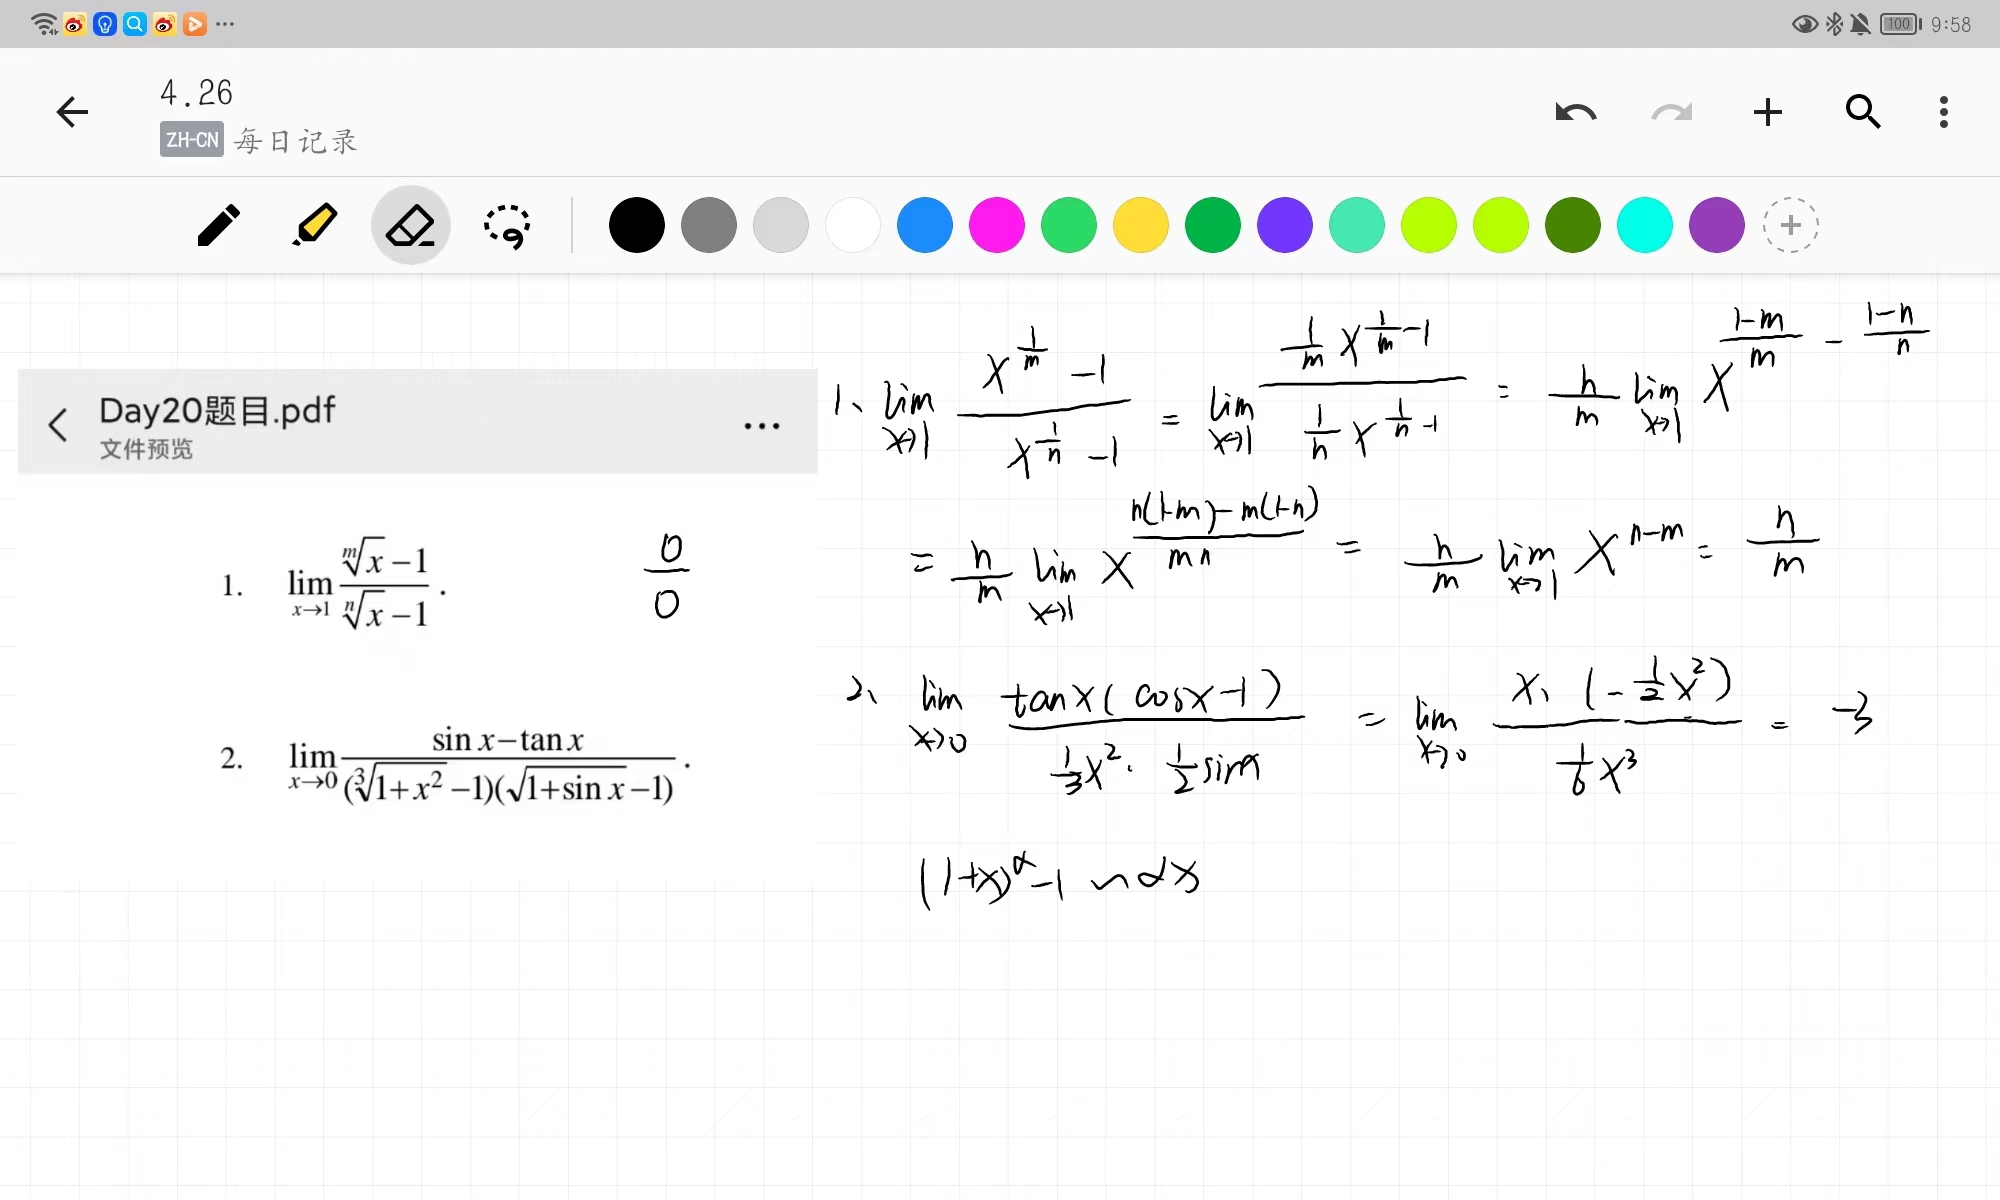 9:58
100
4.26
ZH-CN 每日记录
Day20题目.pdf
文件预览
1. lim x→1 (ᵐ√x − 1)/(ⁿ√x − 1).
0/0
2. lim x→0 (sin x − tan x)/((³√(1+x²) − 1)(√(1+sin x) − 1)).
1、lim x→1 (x^(1/m) − 1)/(x^(1/n) − 1) = lim x→1 (1/m x^(1/m − 1))/(1/n x^(1/n − 1)) = n/m lim x→1 x^((1−m)/m − (1−n)/n)
= n/m lim x→1 x^((n(1−m)−m(1−n))/mn) = n/m lim x→1 x^(n−m) = n/m
2、lim x→0 (tanx(cosx−1))/(1/3 x² · 1/2 sinx) = lim x→0 (x·(−1/2 x²))/(1/6 x³) = −3
(1+x)^α − 1 ~ αx